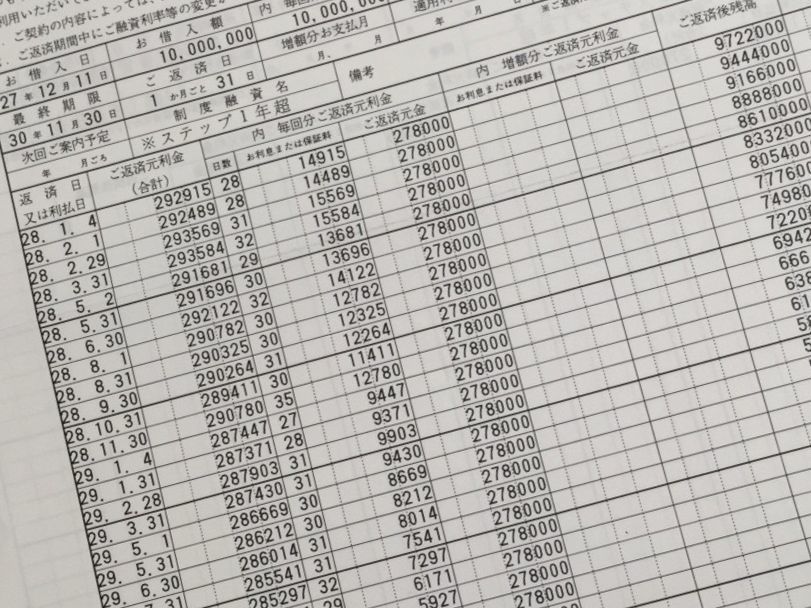 利用いただいて
、ご契約の内容によっては、
、ご返済期間中にご融資利率等の変更が
お借入日 お借入額 内 毎回
27年12月11日 10,000,000 10,000,000
最終期限 ご返済日 増額分お支払月
30年11月30日 1か月ごと 31日 月、 月 年 月 日
次回ご案内予定 制度融資名 備考
年 月ごろ ※ステップ1年超
返済日又は利払日 ご返済元利金(合計) 内 毎回分ご返済元利金 内 増額分ご返済元利金 ご返済後残高
日数 お利息または保証料 ご返済元金 お利息または保証料 ご返済元金
28. 1. 4 292915 28 14915 278000 9722000
28. 2. 1 292489 28 14489 278000 9444000
28. 2.29 293569 31 15569 278000 9166000
28. 3.31 293584 32 15584 278000 8888000
28. 5. 2 291681 29 13681 278000 8610000
28. 5.31 291696 30 13696 278000
28. 6.30 292122 32 14122 278000
28. 8. 1 290782 30 12782 278000
28. 8.31 290325 30 12325 278000
28. 9.30 290264 31 12264 278000
28.10.31 289411 30 11411 278000
28.11.30 290780 35 12780 278000
29. 1. 4 287447 27 9447 278000
29. 1.31 287371 28 9371 278000
29. 2.28 287903 31 9903 278000
29. 3.31 287430 31 9430 278000
29. 5. 1 286669 30 8669 278000
29. 5.31 286212 30 8212 278000
29. 6.30 286014 31 8014 278000
7.31 285541 31 7541 278000
285297 32 7297 278000
6171 278000
5927